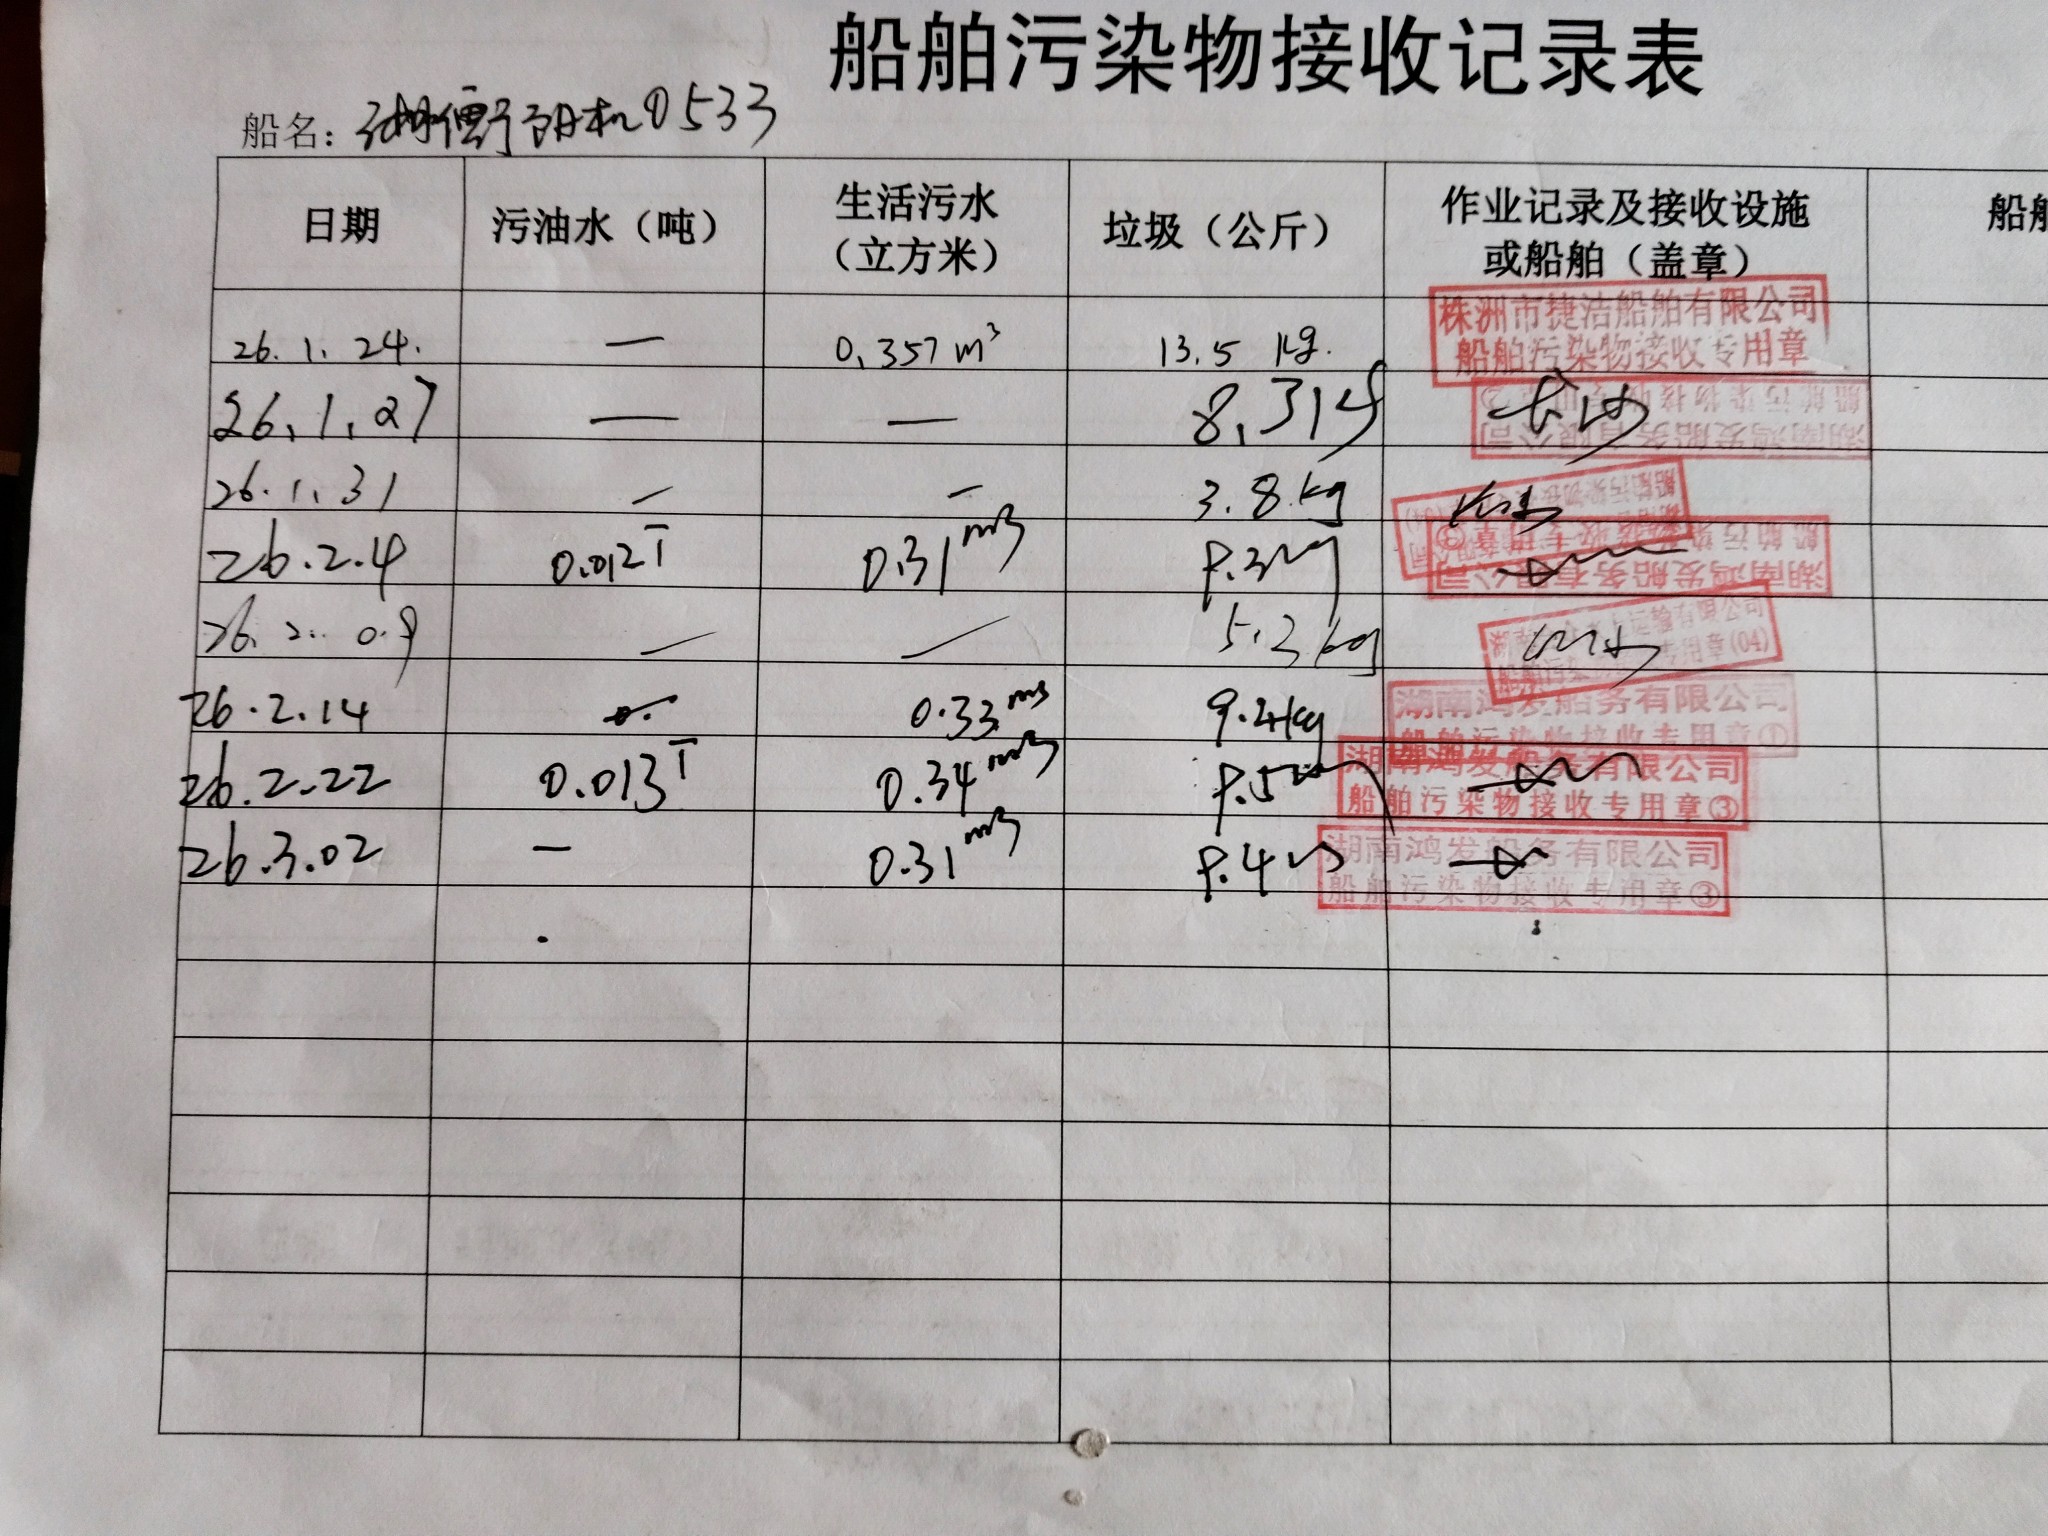 船舶污染物接收记录表
船名：湖衡阳机0533
日期 污油水（吨） 生活污水（立方米） 垃圾（公斤） 作业记录及接收设施或船舶（盖章） 船舶
26.1.24. — 0.357m³ 13.5 kg. 株洲市捷洁船舶有限公司 船舶污染物接收专用章
26.1.27 — — 8.31 长沙 湖南鸿发船务有限公司
26.1.31 — — 3.8kg
26.2.4 0.012T 0.31m3 8.3 湖南鸿发船务有限公司
26.2.09 — — 5.2kg 专用章(04)
26.2.14 0.33m3 9.2kg 湖南鸿发船务有限公司 船舶污染物接收专用章①
26.2.22 0.013T 0.34m3 8.5 湖南鸿发船务有限公司 船舶污染物接收专用章③
26.3.02 — 0.31m3 8.4 湖南鸿发船务有限公司 船舶污染物接收专用章③